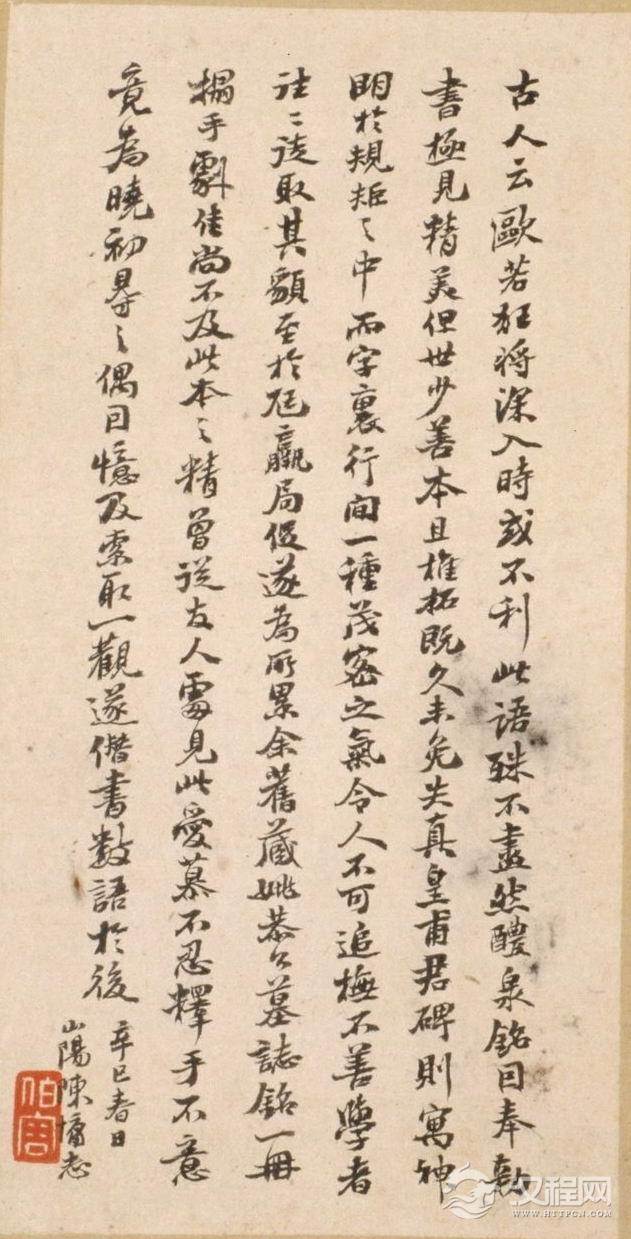 古人云歐若狂將深入時或不利此語殊不盡然醴泉銘因奉敕
書極見精美但世少善本且椎拓既久未免失真皇甫君碑則寓神
明於規矩之中而字裏行間一種茂密之氣令人不可追橅不善學者
往〻徒取其貌至於尪羸局促遂為所累余舊藏姚恭公墓誌銘一冊
搨手劇佳尚不及此本之精曾從友人處見此愛慕不忍釋手不意
竟為曉初尋之偶因憶及索取一觀遂僭書數語於後
辛巳春日
山陽陳墉志
伯容
汉程网
WWW.HTTPCN.COM